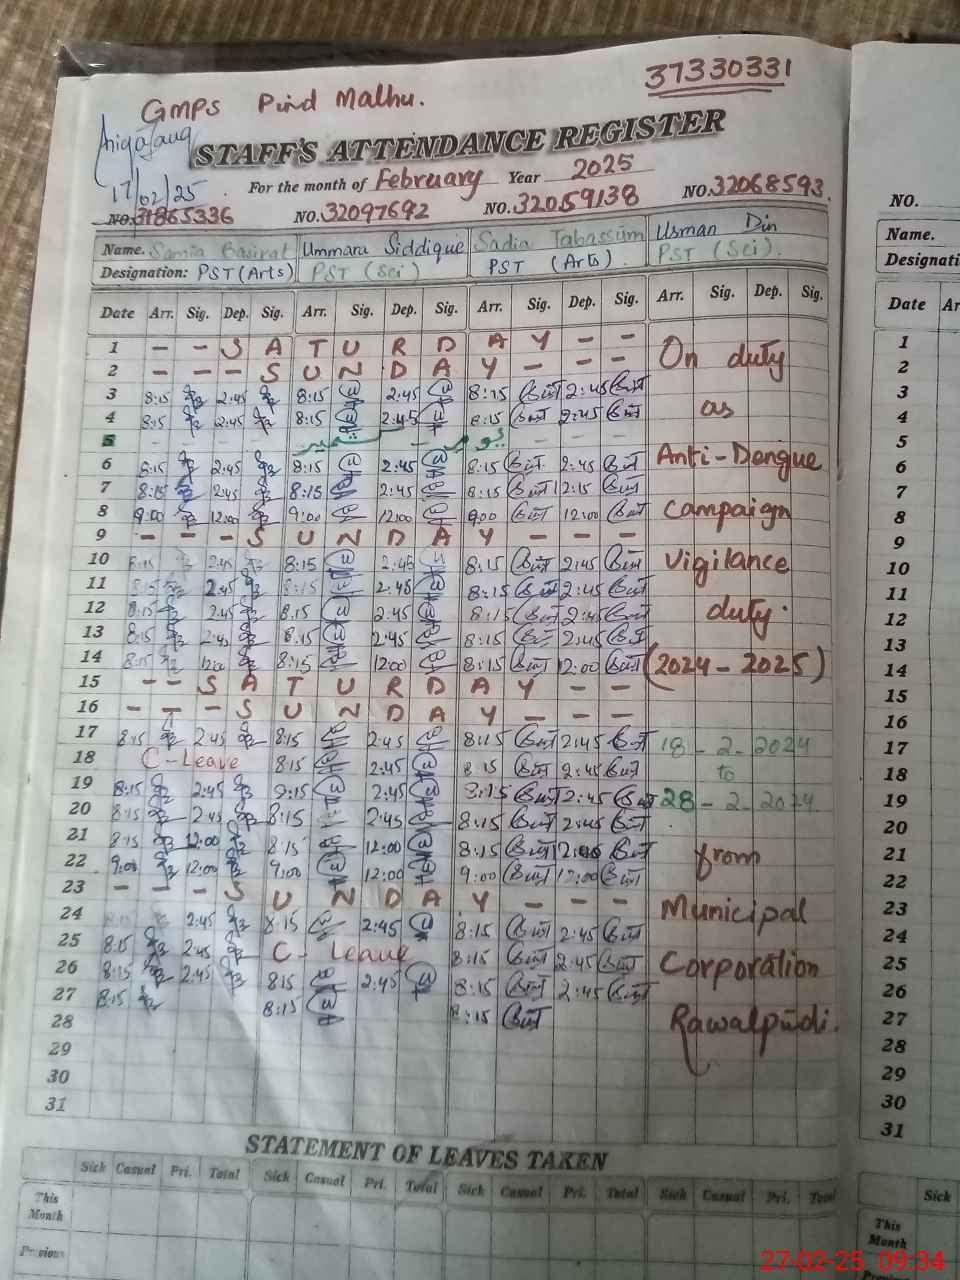 37330331
GMPS Pind Malhu.
17/02/25
STAFF'S ATTENDANCE REGISTER
For the month of February Year 2025
NO.31865336 NO.32097692 NO.32059138 NO.32068593. NO.
Name. Samia Basirat Ummara Siddique Sadia Tabassum Usman Din Name.
Designation: PST (Arts) PST (Sci) PST (Arts). PST (Sci). Designati
Date Arr. Sig. Dep. Sig. Arr. Sig. Dep. Sig. Arr. Sig. Dep. Sig. Arr. Sig. Dep. Sig. Date Ar
1 - - S A T U R D A Y - - On duty 1
2 - - - S U N D A Y - - - 2
3 8:15 2:45 8:15 2:45 8:15 2:45 3
4 8:15 2:45 8:15 2:45 8:15 2:45 as 4
5 - - - یوم - کشمیر - - - 5
6 8:15 2:45 8:15 2:45 8:15 2:45 Anti-Dengue 6
7 8:15 2:45 8:15 2:45 8:15 7
8 9:00 12:00 9:00 12:00 9:00 12:00 Campaign 8
9 - - - S U N D A Y - - - 9
10 8:15 2:45 8:15 2:45 8:15 2:45 Vigilance 10
11 8:15 2:45 8:15 2:45 8:15 2:45 11
12 8:15 2:45 8:15 2:45 8:15 2:45 duty. 12
13 8:15 2:45 8:15 2:45 8:15 2:45 13
14 8:15 12:00 8:15 12:00 8:15 12:00 (2024-2025) 14
15 - - S A T U R D A Y - - 15
16 - - - S U N D A Y - - - 16
17 8:15 2:45 8:15 2:45 8:15 2:45 18-2-2024 17
18 C-Leave 8:15 2:45 8:15 2:45 to 18
19 8:15 2:45 8:15 2:45 8:15 2:45 28-2-2024 19
20 8:15 2:45 8:15 2:45 8:15 2:45 20
21 8:15 12:00 8:15 12:00 8:15 from 21
22 9:00 12:00 9:00 12:00 9:00 12:00 22
23 - - - S U N D A Y - - - Municipal 23
24 2:45 8:15 2:45 8:15 2:45 24
25 8:15 2:45 C- Leave 8:15 2:45 Corporation 25
26 8:15 2:45 8:15 2:45 8:15 2:45 26
27 8:15 8:15 8:15 Rawalpindi. 27
28 28
29 29
30 30
31 31
STATEMENT OF LEAVES TAKEN
Sick Casual Pri. Total Sick Casual Pri. Total Sick Casual Pri. Total Sick Casual Pri. Total Sick
This Month This Month
Previous
27-02-25 09:34